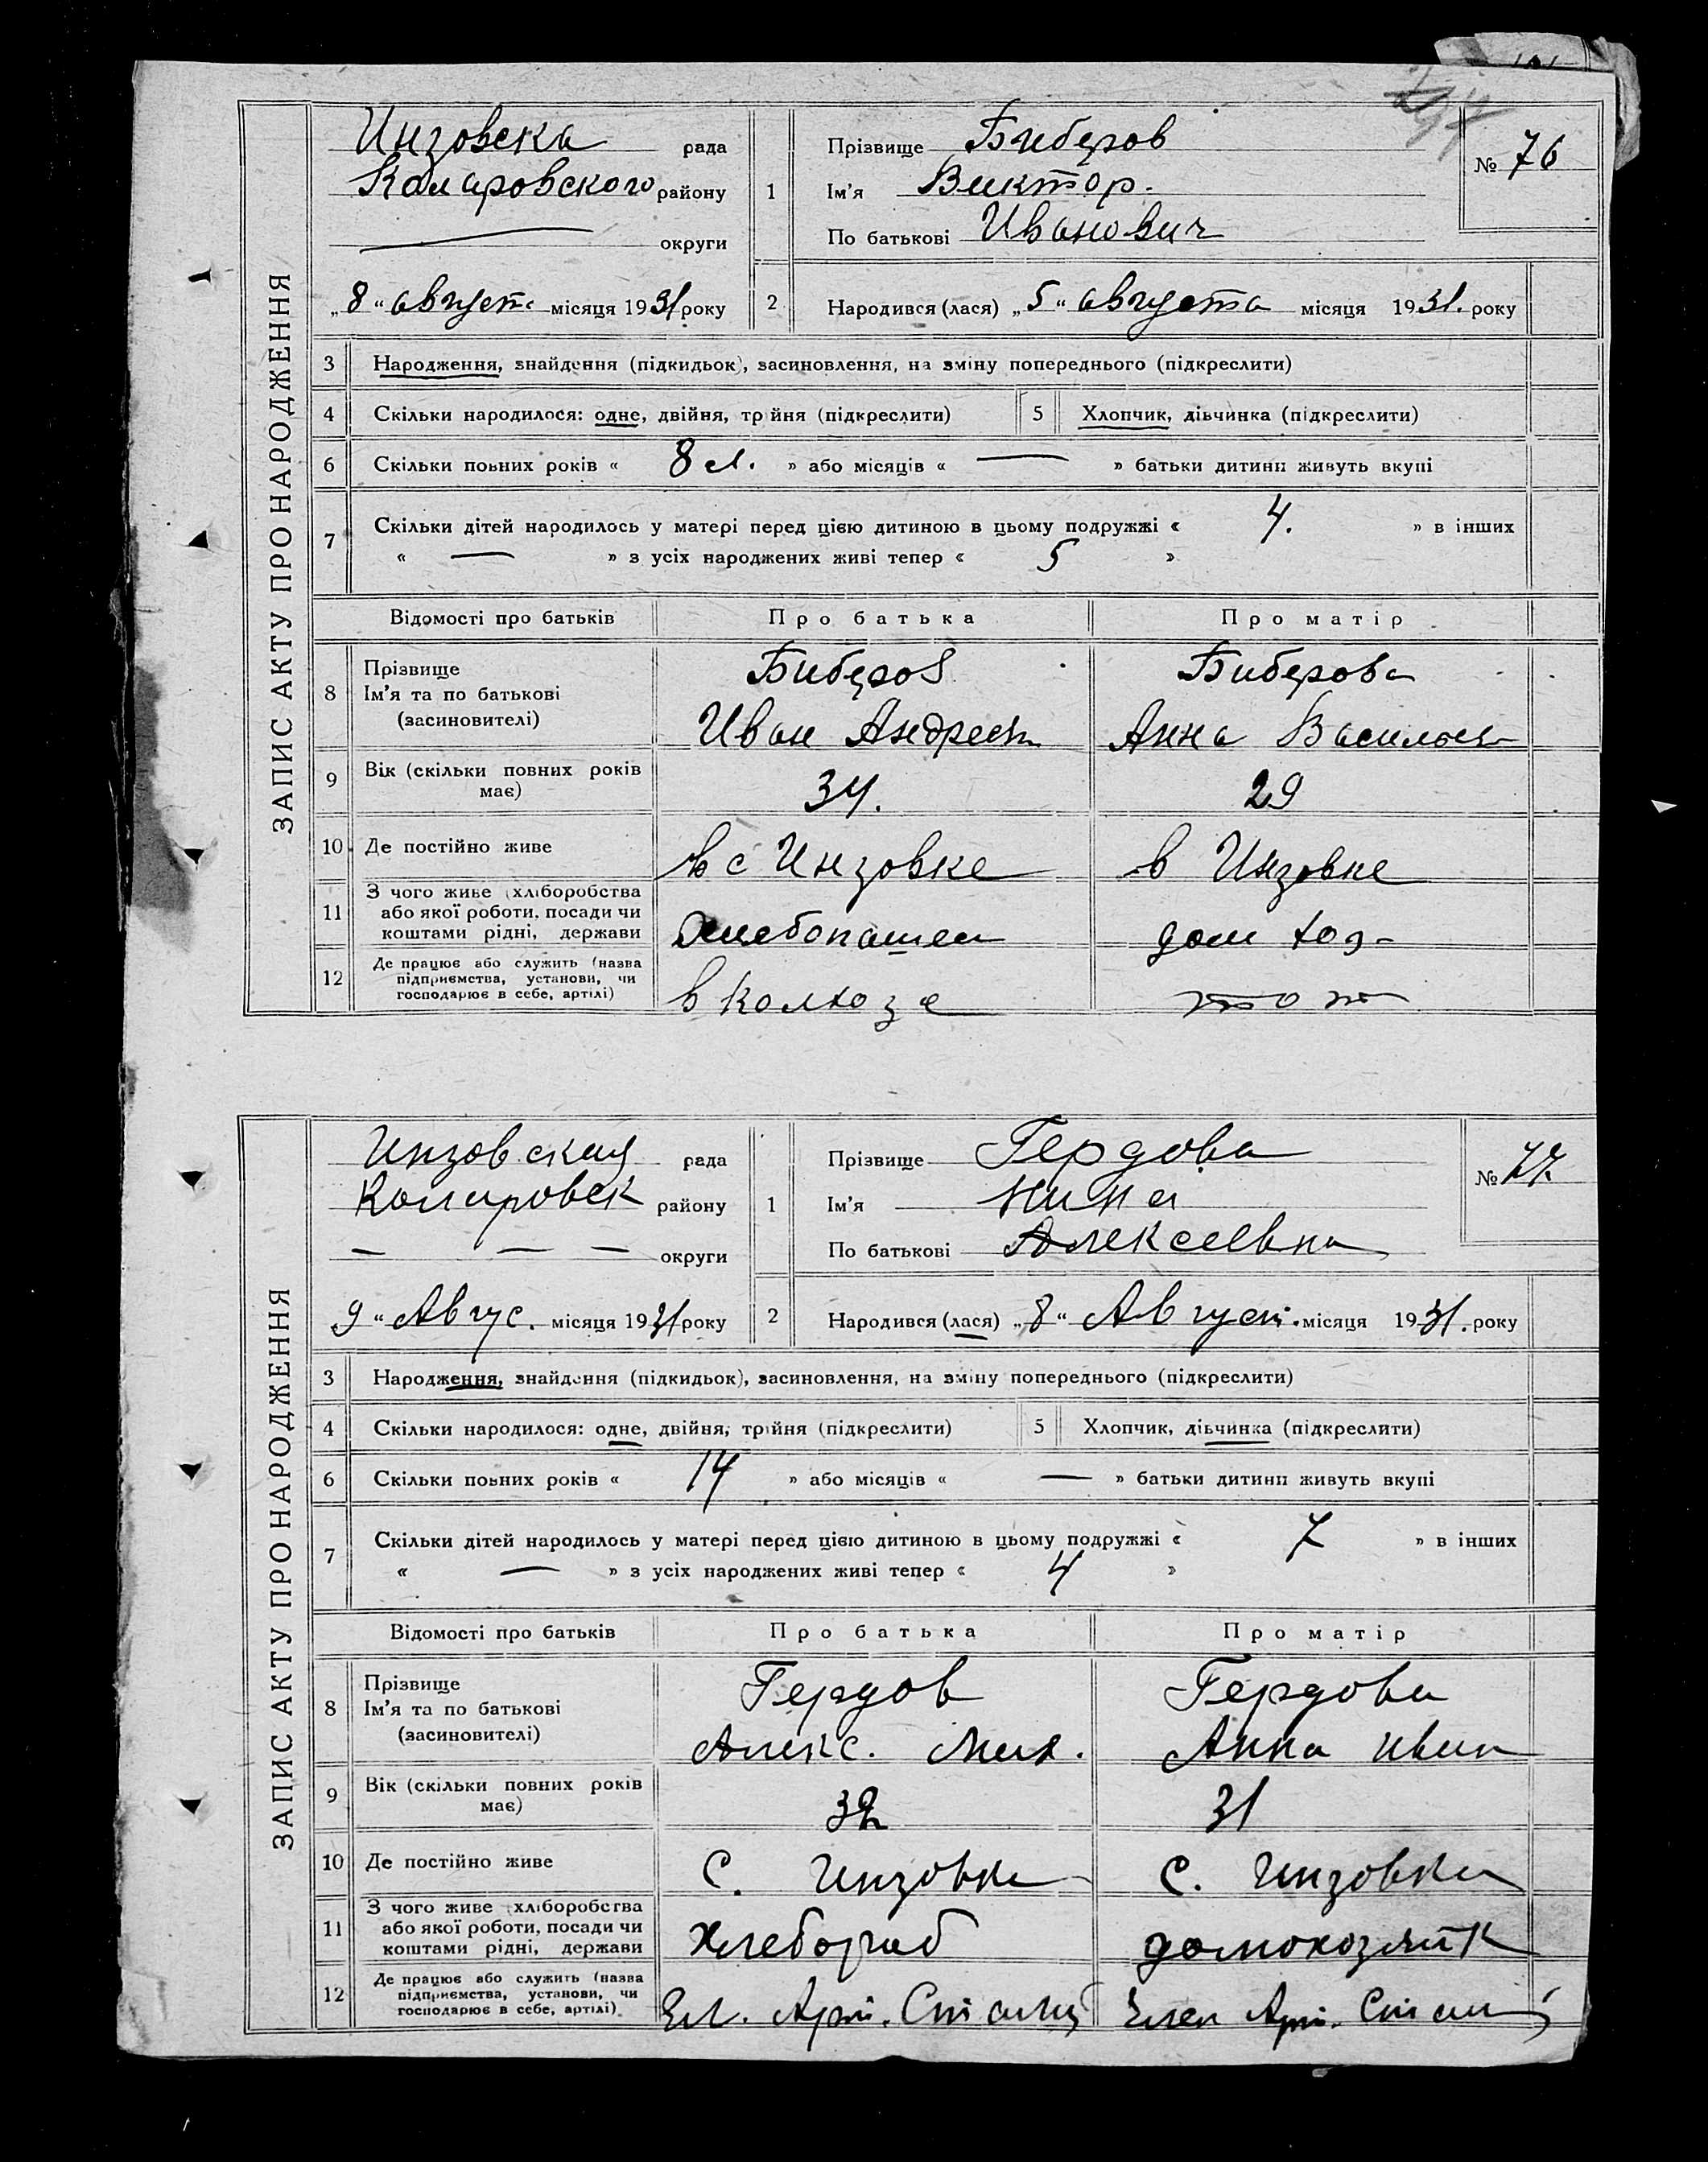 ЗАПИС АКТУ ПРО НАРОДЖЕННЯ
Инзовска рада
Комаровского району
округи
„8“ август. місяця 1931 року
1
Прізвище Биберов
Ім'я Виктор.
По батькові Иванович
№ 76
2
Народився (лася) „5“ августа місяця 1931. року
3 Народження, знайдення (підкидьок), засиновлення, на зміну попереднього (підкреслити)
4 Скільки народилося: одне, двійня, трійня (підкреслити) 5 Хлопчик, дівчинка (підкреслити)
6 Скільки повних років « 8 л. » або місяців « — » батьки дитини живуть вкупі
7 Скільки дітей народилось у матері перед цією дитиною в цьому подружжі « 4. » в інших
« — » з усіх народжених живі тепер « 5 »
Відомості про батьків Про батька Про матір
8 Прізвище
Ім'я та по батькові
(засиновителі)
Биберов
Иван Андреев
Биберова
Анна Васильев
9 Вік (скільки повних років
має)
34. 29
10 Де постійно живе в с Инзовке в Инзовке
11 З чого живе (хліборобства
або якої роботи, посади чи
коштами рідні, держави
Хлебопашец дом хоз-
12 Де працює або служить (назва
підприємства, установи, чи
господарює в себе, артілі)
в колхозе то ж
ЗАПИС АКТУ ПРО НАРОДЖЕННЯ
Инзовская рада
Комаровск району
— — — округи
9 “ Авгус. місяця 1931 року
1
Прізвище Гердова
Ім'я Нина
По батькові Алексеевна
№ 77
2
Народився (лася) „8“ Август. місяця 1931. року
3 Народження, знайдення (підкидьок), засиновлення, на зміну попереднього (підкреслити)
4 Скільки народилося: одне, двійня, трійня (підкреслити) 5 Хлопчик, дівчинка (підкреслити)
6 Скільки повних років « 14 » або місяців « — » батьки дитини живуть вкупі
7 Скільки дітей народилось у матері перед цією дитиною в цьому подружжі « 7 » в інших
« — » з усіх народжених живі тепер « 4 »
Відомості про батьків Про батька Про матір
8 Прізвище
Ім'я та по батькові
(засиновителі)
Гердов
Алекс. Мих.
Гердова
Анна Иван
9 Вік (скільки повних років
має)
32 31
10 Де постійно живе С. Инзовка С. Инзовка
11 З чого живе (хліборобства
або якої роботи, посади чи
коштами рідні, держави
Хлебороб домохозяйк
12 Де працює або служить (назва
підприємства, установи, чи
господарює в себе, артілі)
Чл. Арт. Член Арт.